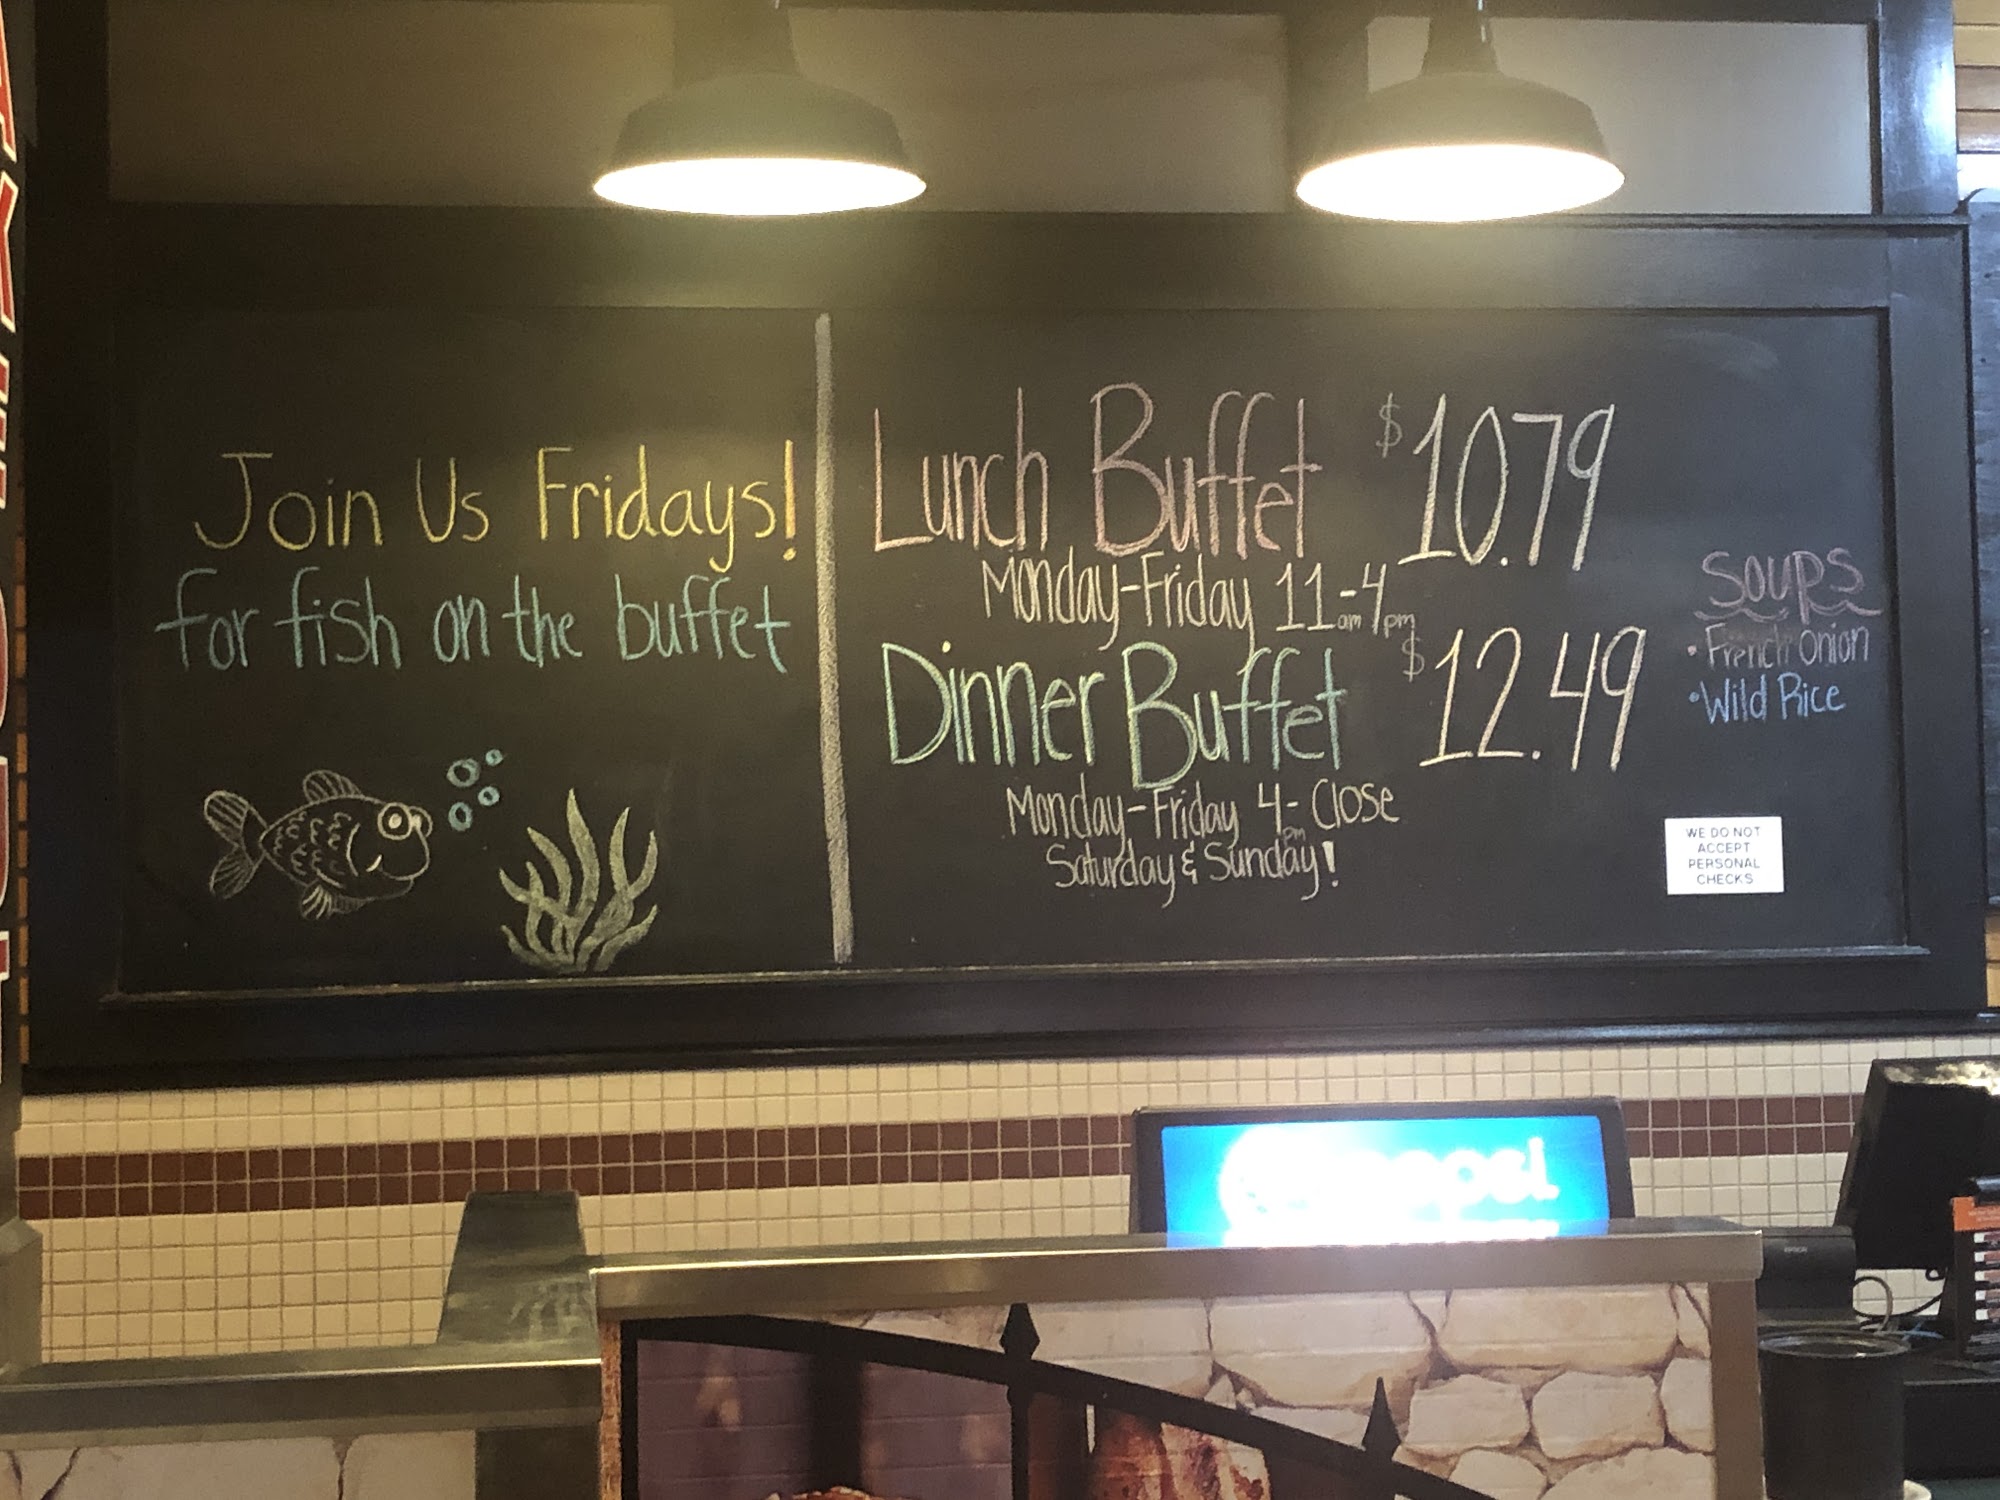 Join Us Fridays!
for fish on the buffet
Lunch Buffet $10.79
Monday-Friday 11am-4pm
Dinner Buffet $12.49
Monday-Friday 4pm-Close
Saturday & Sunday!
Soups
• French Onion
• Wild Rice
WE DO NOT
ACCEPT
PERSONAL
CHECKS
pepsi
EPSON